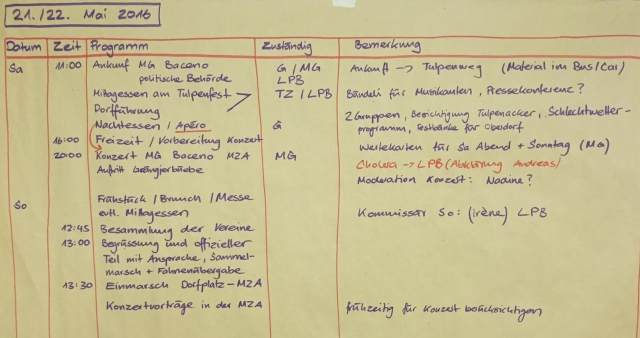 21./22. Mai 2016
Datum Zeit Programm Zuständig Bemerkung
Sa 11:00 Ankunft MG Baceno G / MG Ankunft → Tulpenweg (Material im Bus/Car)
politische Behörde LPB
Mittagessen am Tulpenfest TZ / LPB Bändeli für Musikanten, Pressekonferenz?
Dorfführung 2 Gruppen, Besichtigung Tulpenacker, Schlechtwetter-
Nachtessen / Apéro G programm, Festbänke für Oberdorf
16:00 Freizeit / Vorbereitung Konzert Wertekarten für Sa Abend + Sonntag (MG)
20:00 Konzert MG Baceno MZA MG Cholera → LPB (Abklärung Andreas)
Auftritt Moderation Konzert: Nadine?
So Frühstück / Brunch / Messe
evtl. Mittagessen Kommissär So: (Irène) LPB
12:45 Besammlung der Vereine
13:00 Begrüssung und offizieller
Teil mit Ansprache, Sammel-
marsch + Fahnenübergabe
13:30 Einmarsch Dorfplatz - MZA
Konzertvorträge in der MZA frühzeitig für Konzert berücksichtigen